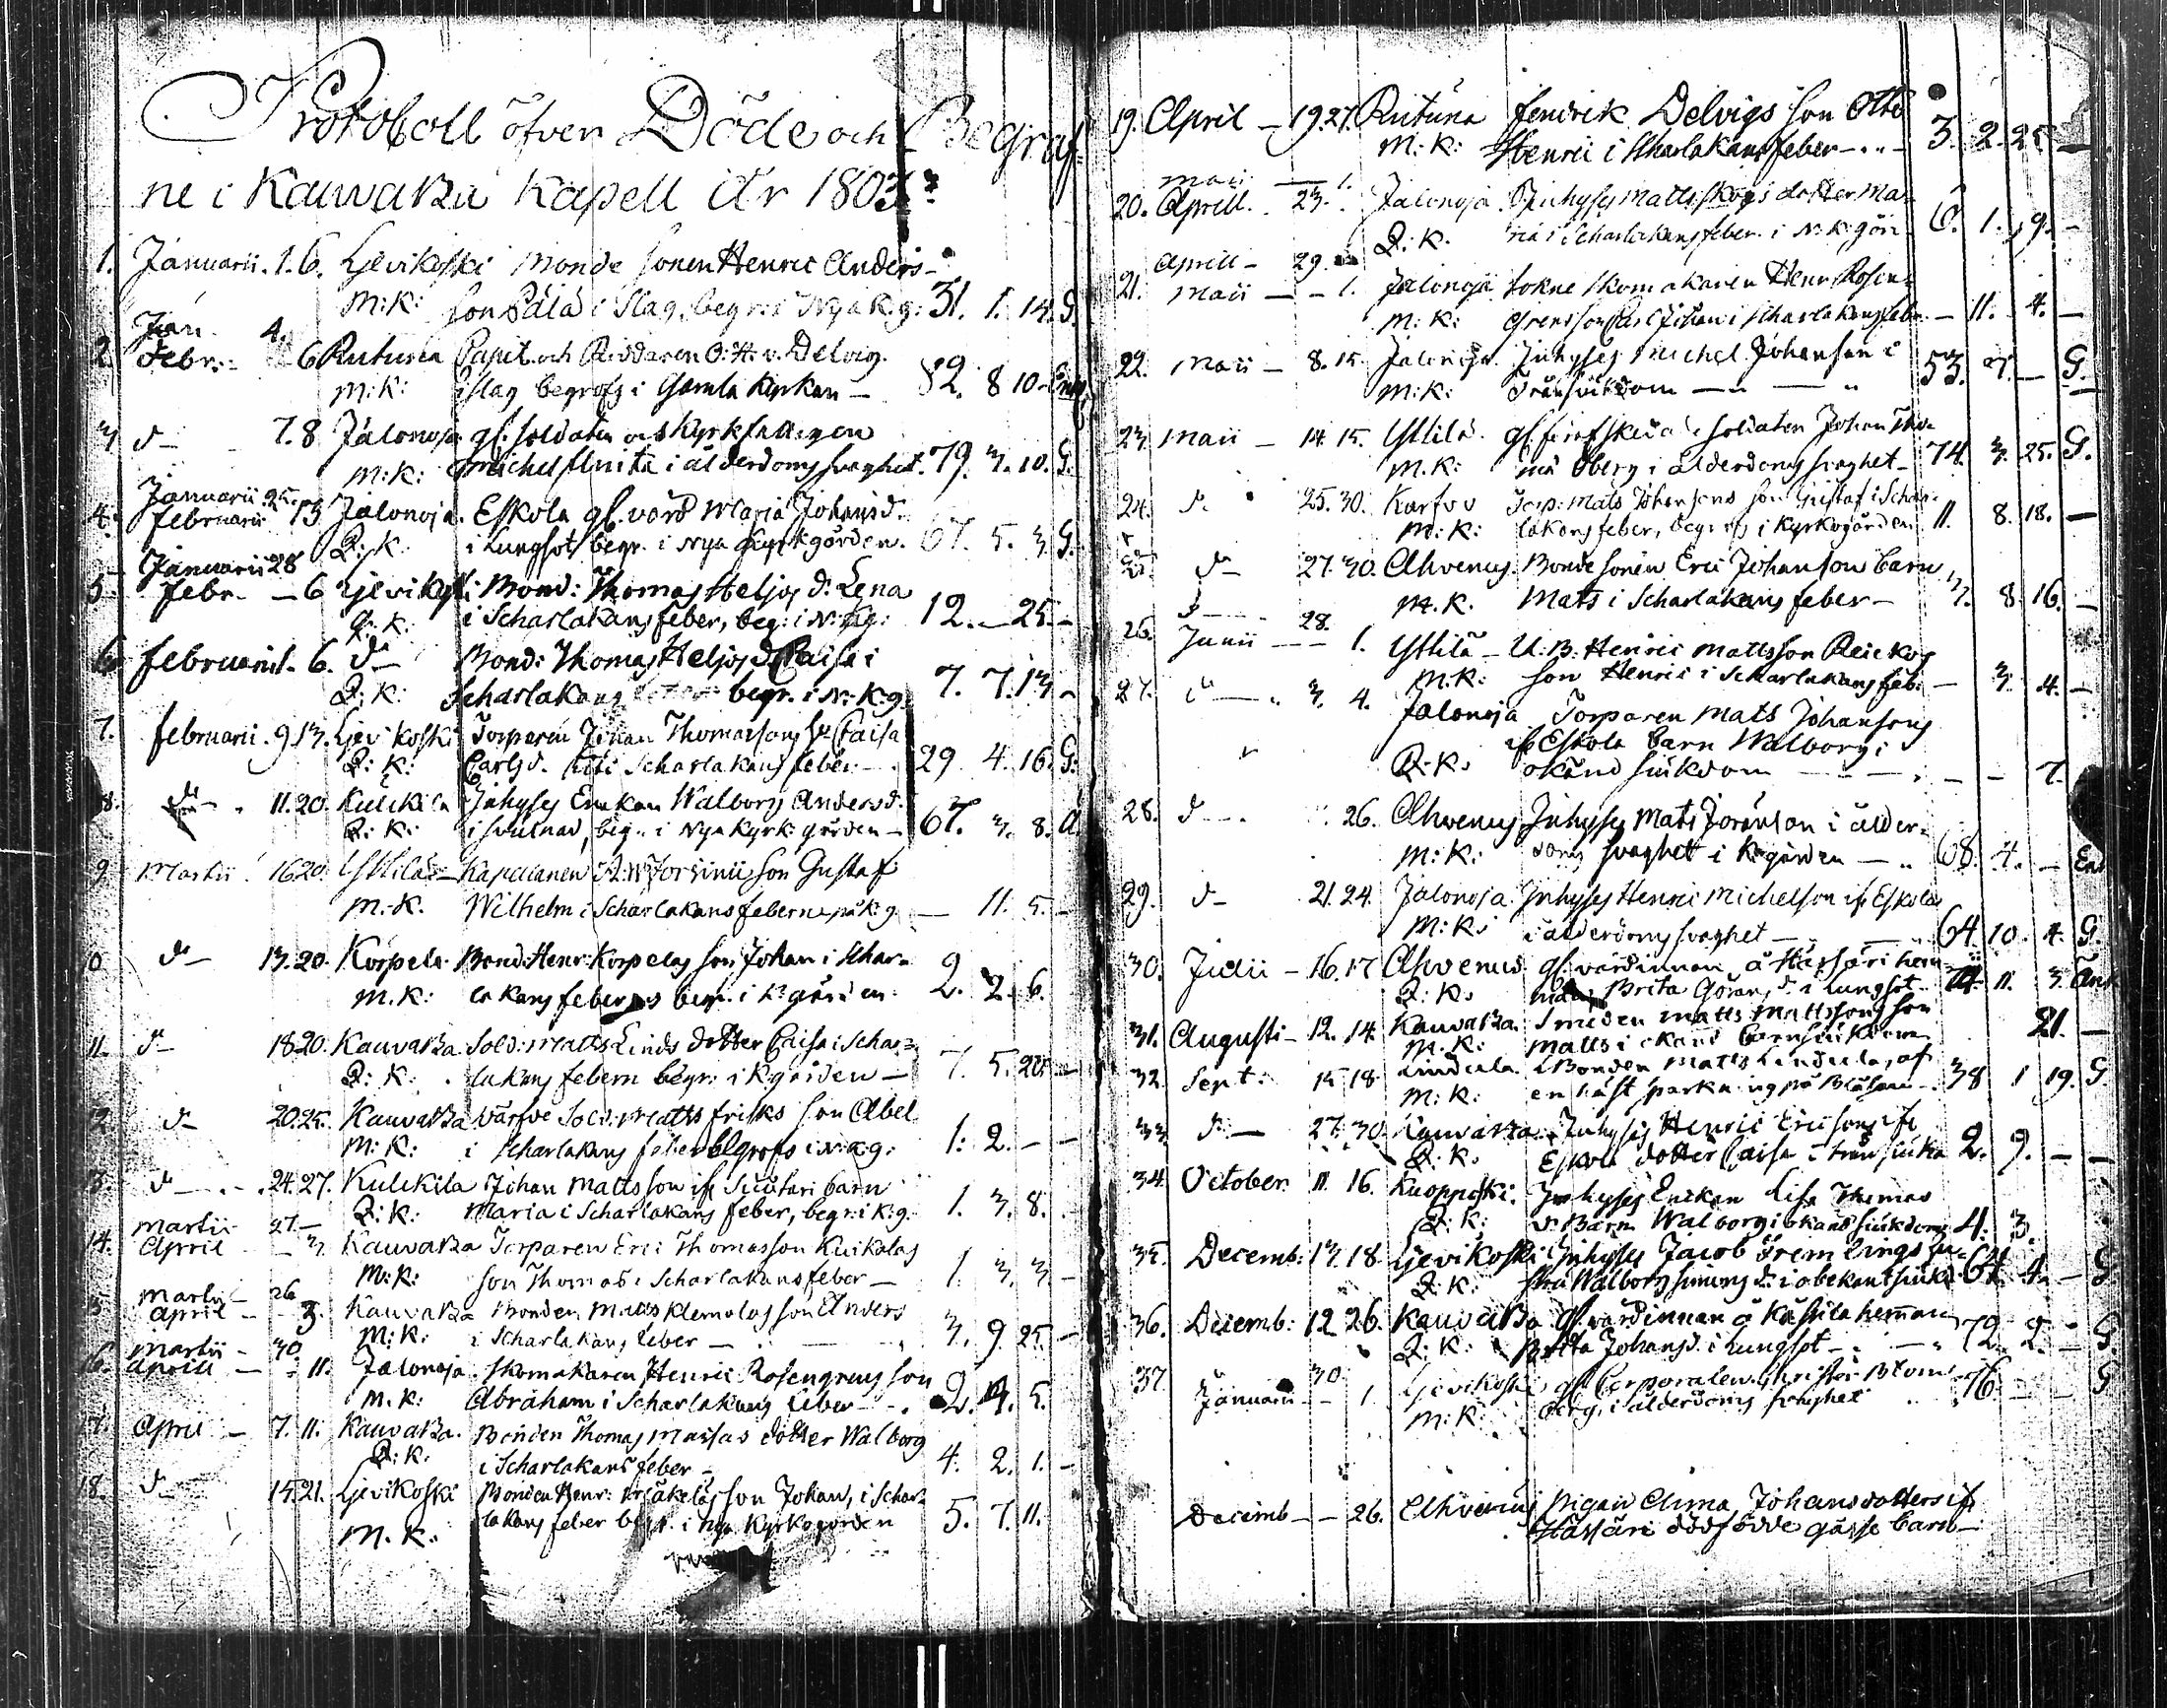 Protokoll öfver Döde och Begraf=
ne i Kauvatza Kapell År 1803
1. Januarii. 1. 6. Ljevikoski Bonde sonen Henric Anders-
M: K: son Pälä i Slag, begr: i Nya K: g: 31. 1. 14. G.
Jan. 4.
2. Febr: 6 Rutuna Capit. och Riddaren O: H: v. Delvig
M: K: i slag begrafs i Gamla Kyrkan — 82. 8 10.
3 d— 7. 8 Jalonoja gl: soldaten och Kyrk
M: K: Michel i ålderdoms svaghet. 79. 3. 10. G.
Januarii 25.
4. Februarii 13 Jalonoja. Eskola gl. värd Maria Johansd:
Q: K: i Lungsot begr. i Nya Kyrkgården. 67. 5. 3. G.
Januarii 28
5 Febr. — 6 Ljevikoski Bond: Thomas Heljos d: Lena
Q: K: i Scharlakans feber, beg: i N: K: g: 12. — 25. -
6 Februarii 1. 6. d— Bond: Thomas Heljos d. Caisa i
Q: K: Scharlakans begr. i N: K: g: 7. 7. 13. -
7. Februarii. 9 13. Ljevikoski Torparen Johan Thomassons Caisa
Q: K: Carlsd. i Scharlakans feber — 29 4. 16. G.
8. d— 11. 20. Kulckila Inhyses Enckan Walborg Andersd.
Q: K: i svulnad, begr. i Nya Kyrk: gården — 67. 3. 8.
9 Martii. 16 20. Yttilä — Kapellanen Forsinii son Gustaf
M. K. Wilhelm i Scharlakans febern på K: g — 11. 5. -
10. d— 13. 20. Korpela Bond: Henr: Korpelas son Johan i Schar=
M. K: lakans feber begr. i K: gården 2. 2. 6.
11. d— 18 20. Kauvatza Sold: Matts Linds dotter Caisa i Schar=
Q: K: lakans febern begr: i K: gården — 7. 5. 20. —
d— 20. 25. Kauvatza Värfve Sold: Matts Frisks son Abel
M: K: i Scharlakans feber begrafs i N: K: g: 1: 2. - -
d— 24. 27. Kulckila Johan Mattsson ifr Suutari barn
Q: K: Maria i Scharlakans feber, begr: i K: g. 1. 3. 8.
Martii 27.—
14. April — 3 Kauvatza Torparen Eric Thomasson Kuikalas
M: K: son Thomas i Scharlakans feber — 1. 3. 3 -
Martii — 26
April — 3. Kauvatza Bonden Matts Klemolas son Anders
M: K: i Scharlakans feber — 3. 9 25. -
Martii — 30
16. April — 11. Jalonoja. Skomakaren Henric Rosengrens son
M. K: Abraham i Scharlakans feber — 2. 4. 5.
17. April — 7. 11. Kauvatza. Bonden Thomas Massas dotter Walborg
Q: K. i Scharlakans feber — 4. 2. 1. -
18. d— 15 21. Ljevikoski Bonden Henr: son Johan, i Schar=
M. K: lakans feber begr. i nya Kyrkogården 5. 7. 11.
19. April — 19. 27. Rutuna Fendrik Delvigs son Otto
M: K: Henric i Scharlakans feber — 3. 2. 25 —
Maii — 1.
20. Aprill. 23. Jalonoja Inhyses Matts dotter Ma=
Q: K. ria i Scharlakans feber. i N: K: går: 6. 1. 9. -
Aprill — 29.
21. Maii — 1. Jalonoja Sokne Skomakaren Henr: Rosen=
M: K: grens son Carl Johan i Scharlakans feber. — 11. 4. —
22. Maii — 8. 15. Jalonoja Inhyses Michel Johanson i
M: K: Trånsiukdom — 53. 7. — G.
23. Maii — 14 15. Yttilä. gl. soldaten Johan
M. K: Öberg i ålderdoms svaghet — 74. 3. 25. G.
24. d. 25. 30. Karhu Torp: Mats Johansons son Gustaf i Schar=
M: K: lakans feber, begr i Kyrkogården 11. 8. 18. —
25. d— 27. 30. Ahvenus Bonde sonen Eric Johanson barn
M. K. Mats i Scharlakans feber — 3. 8. 16. —
d— 28.
26. Junii — 1. Yttilä — U. B: Henric Mattsson
M. K: son Henric i Scharlakans feb: — 3. 4. —
27. d— 3. 4. Jalonoja Torparen Mats Johansons
ifr Eskola barn Walborg i
Q: K. okänd siukdom — — — 7.
28. d— 26. Ahvenus Inhyses Mats i ålder=
M: K: doms svaghet i K: gården — 68. 4. —
29. d— 21. 24. Jalonoja Inhyses Henric Michelson ifr Eskola
M: K: i ålderdoms svaghet — 64. 10. 4. G.
30. Julii — 16. 17 Ahvenus gl. värdinnan å Hässäri hem=
Q: K. Brita Görans d. i Lungsot 74. 11. 3.
31. Augusti — 12. 14 Kauvatza. Smeden Matts Mattssons son
M. K: Matts i okänd barnsiukdom 21. —
32. Sept: 15 18. Lindula Bonden Matts Lindula, af
M: K: en häst sparkning på 38 1 19. G.
33. d— 27. 30. Kauvatza Inhyses Henric Ericsons ifr
Q: K. Eskola dotter Caisa i trånsiuka 2. 9. — —
34. October. 11. 16. Kuopposki. Inhyses Enckan Lisa Thomas
Q: K: d: Barn Walborg i okänd siukdom 4. 3.
35. Decemb: 13. 18 Ljevikoski Inhyses Jacob Fremlings hu=
Q: K. stru Walborg Simons d: i obekant siukd. 64. 4. — G.
36. Decemb: 12 26. Kauvatza gl. värdinnan å Kässilä hemman
Q: K: Brita Johansd. i Lungsot — 72. 2. — G
37. 30.
Januarii — 1. Ljevikoski, gl Corporalen Christer Blom=
M: K: berg, i ålderdoms svaghet 76. — — G
Decemb — 26. Ahvenus Pigan Anna Johansdotters ifr
Hässäri dödfödde gåsse barn —